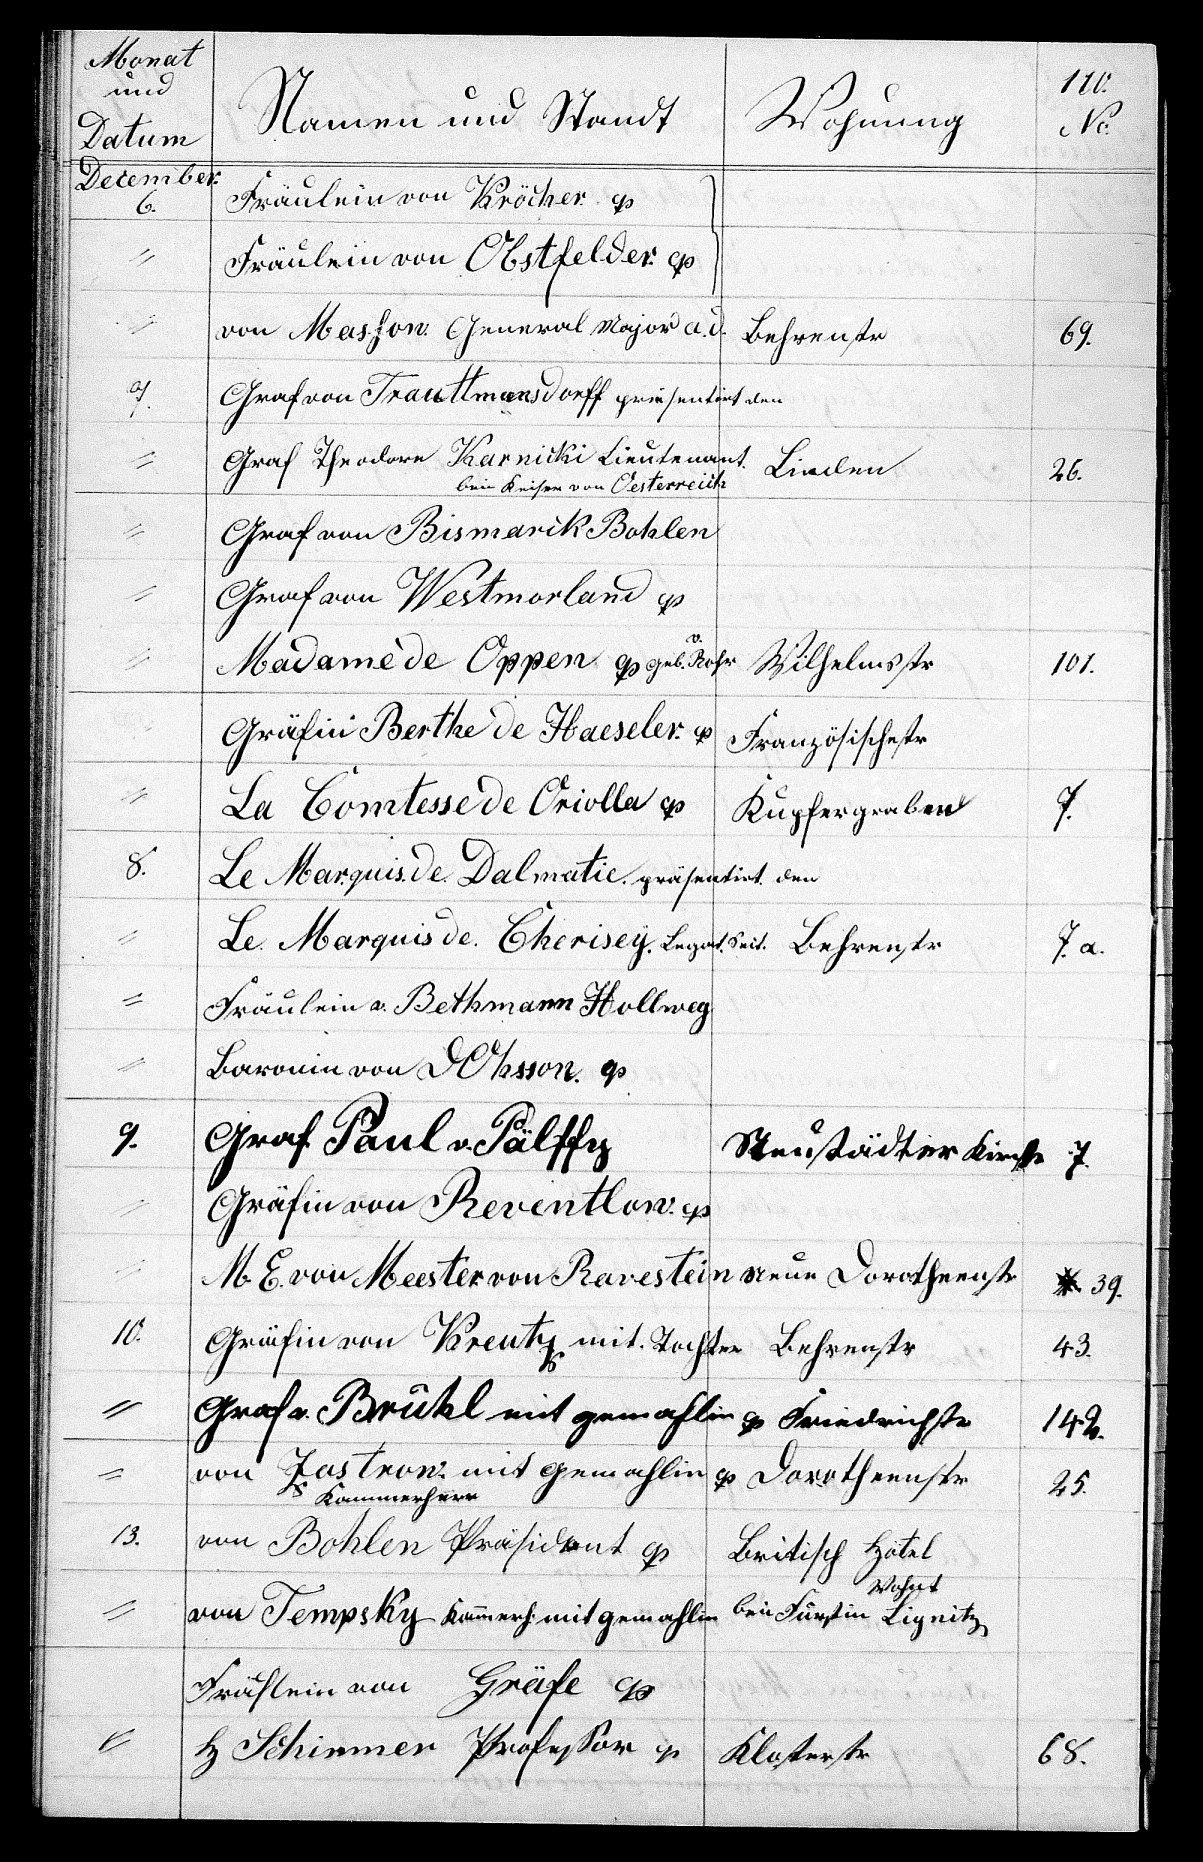 Monat
und
Datum
Namen und Standt
Wohnung
110.
No.
December.
6. Fräulein von Kröcher. qp
" Fräulein von Obstfelder. qp
" von Massow. General Major a. d. Behrenstr 69.
7. Graf von Trauttmansdorff präsentirt den
" Graf Theodore Karnicki Lieutenant. Linden 26.
bein Keiser von Oesterreich
" Graf von Bismarck Bohlen
" Graf von Westmorland qp
" Madame de Oppen qp geb. v. Rohr Wilhelmsstr 101.
" Gräfin Berthe de Haeseler. qp Französischestr
" La Comtesse de Oriolla qp Kupfergraben 7.
8. Le Marquis de Dalmatie. präsentirt den
" Le. Marquis de. Cherisey. Legat. Seit. Behrenstr 7. a.
" Fräulein v. Bethmann Hollweg
" Baronin von DOhsson. qp
9. Graf Paul v. Pälffy Neustädter Kirchstr 7.
" Gräfin von Reventlow. qp
" M. E. von Meester von Ravestein neue Dorotheenstr 39.
10. Gräfin von Kreutz mit. Tochter Behrenstr 43.
" Graf v. Brühl mit gemahlin qp Friedrichstr 142.
" von Zastrow. mit gemahlin qp Dorotheenstr 25.
Kammerherr
13. von Bohlen Präsident qp Britisch Hotel
wohnt
" von Tempsky Kammerh: mit gemahlin bein Fürstin Lignitz
Fräflein von Gräfe qp
" H Schirmer Professor qp Klosterstr 68.